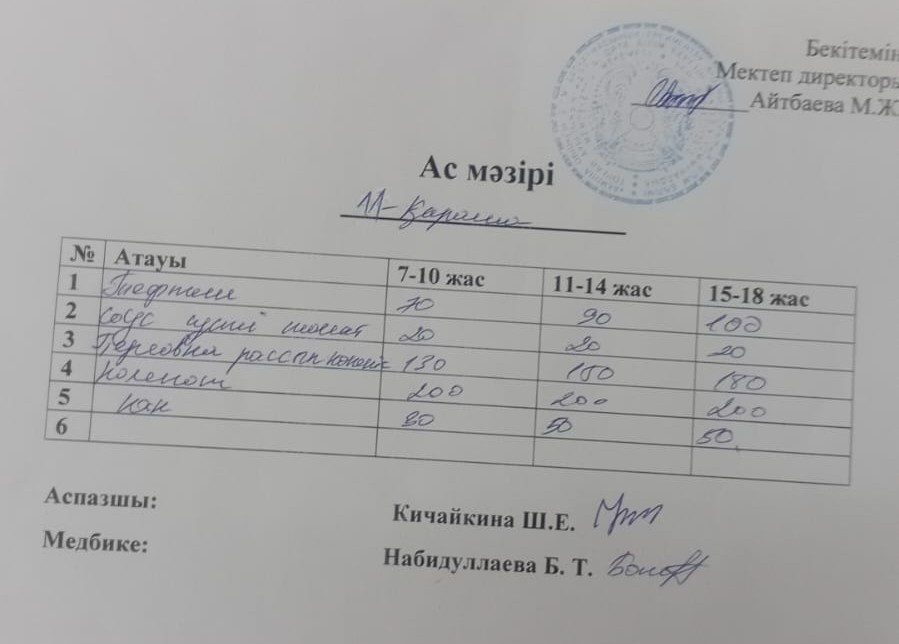 Бекітемін
Мектеп директоры
Айтбаева М.Ж
Ас мәзірі
11-Қараша
№ Атауы 7-10 жас 11-14 жас 15-18 жас
1 Тефтели 70 90 100
2 соус томат 20 20 20
3 Перловка 130 150 180
4 компот 200 200 200
5 нан 30 50 50
6
Аспазшы: Кичайкина Ш.Е.
Медбике: Набидуллаева Б. Т.